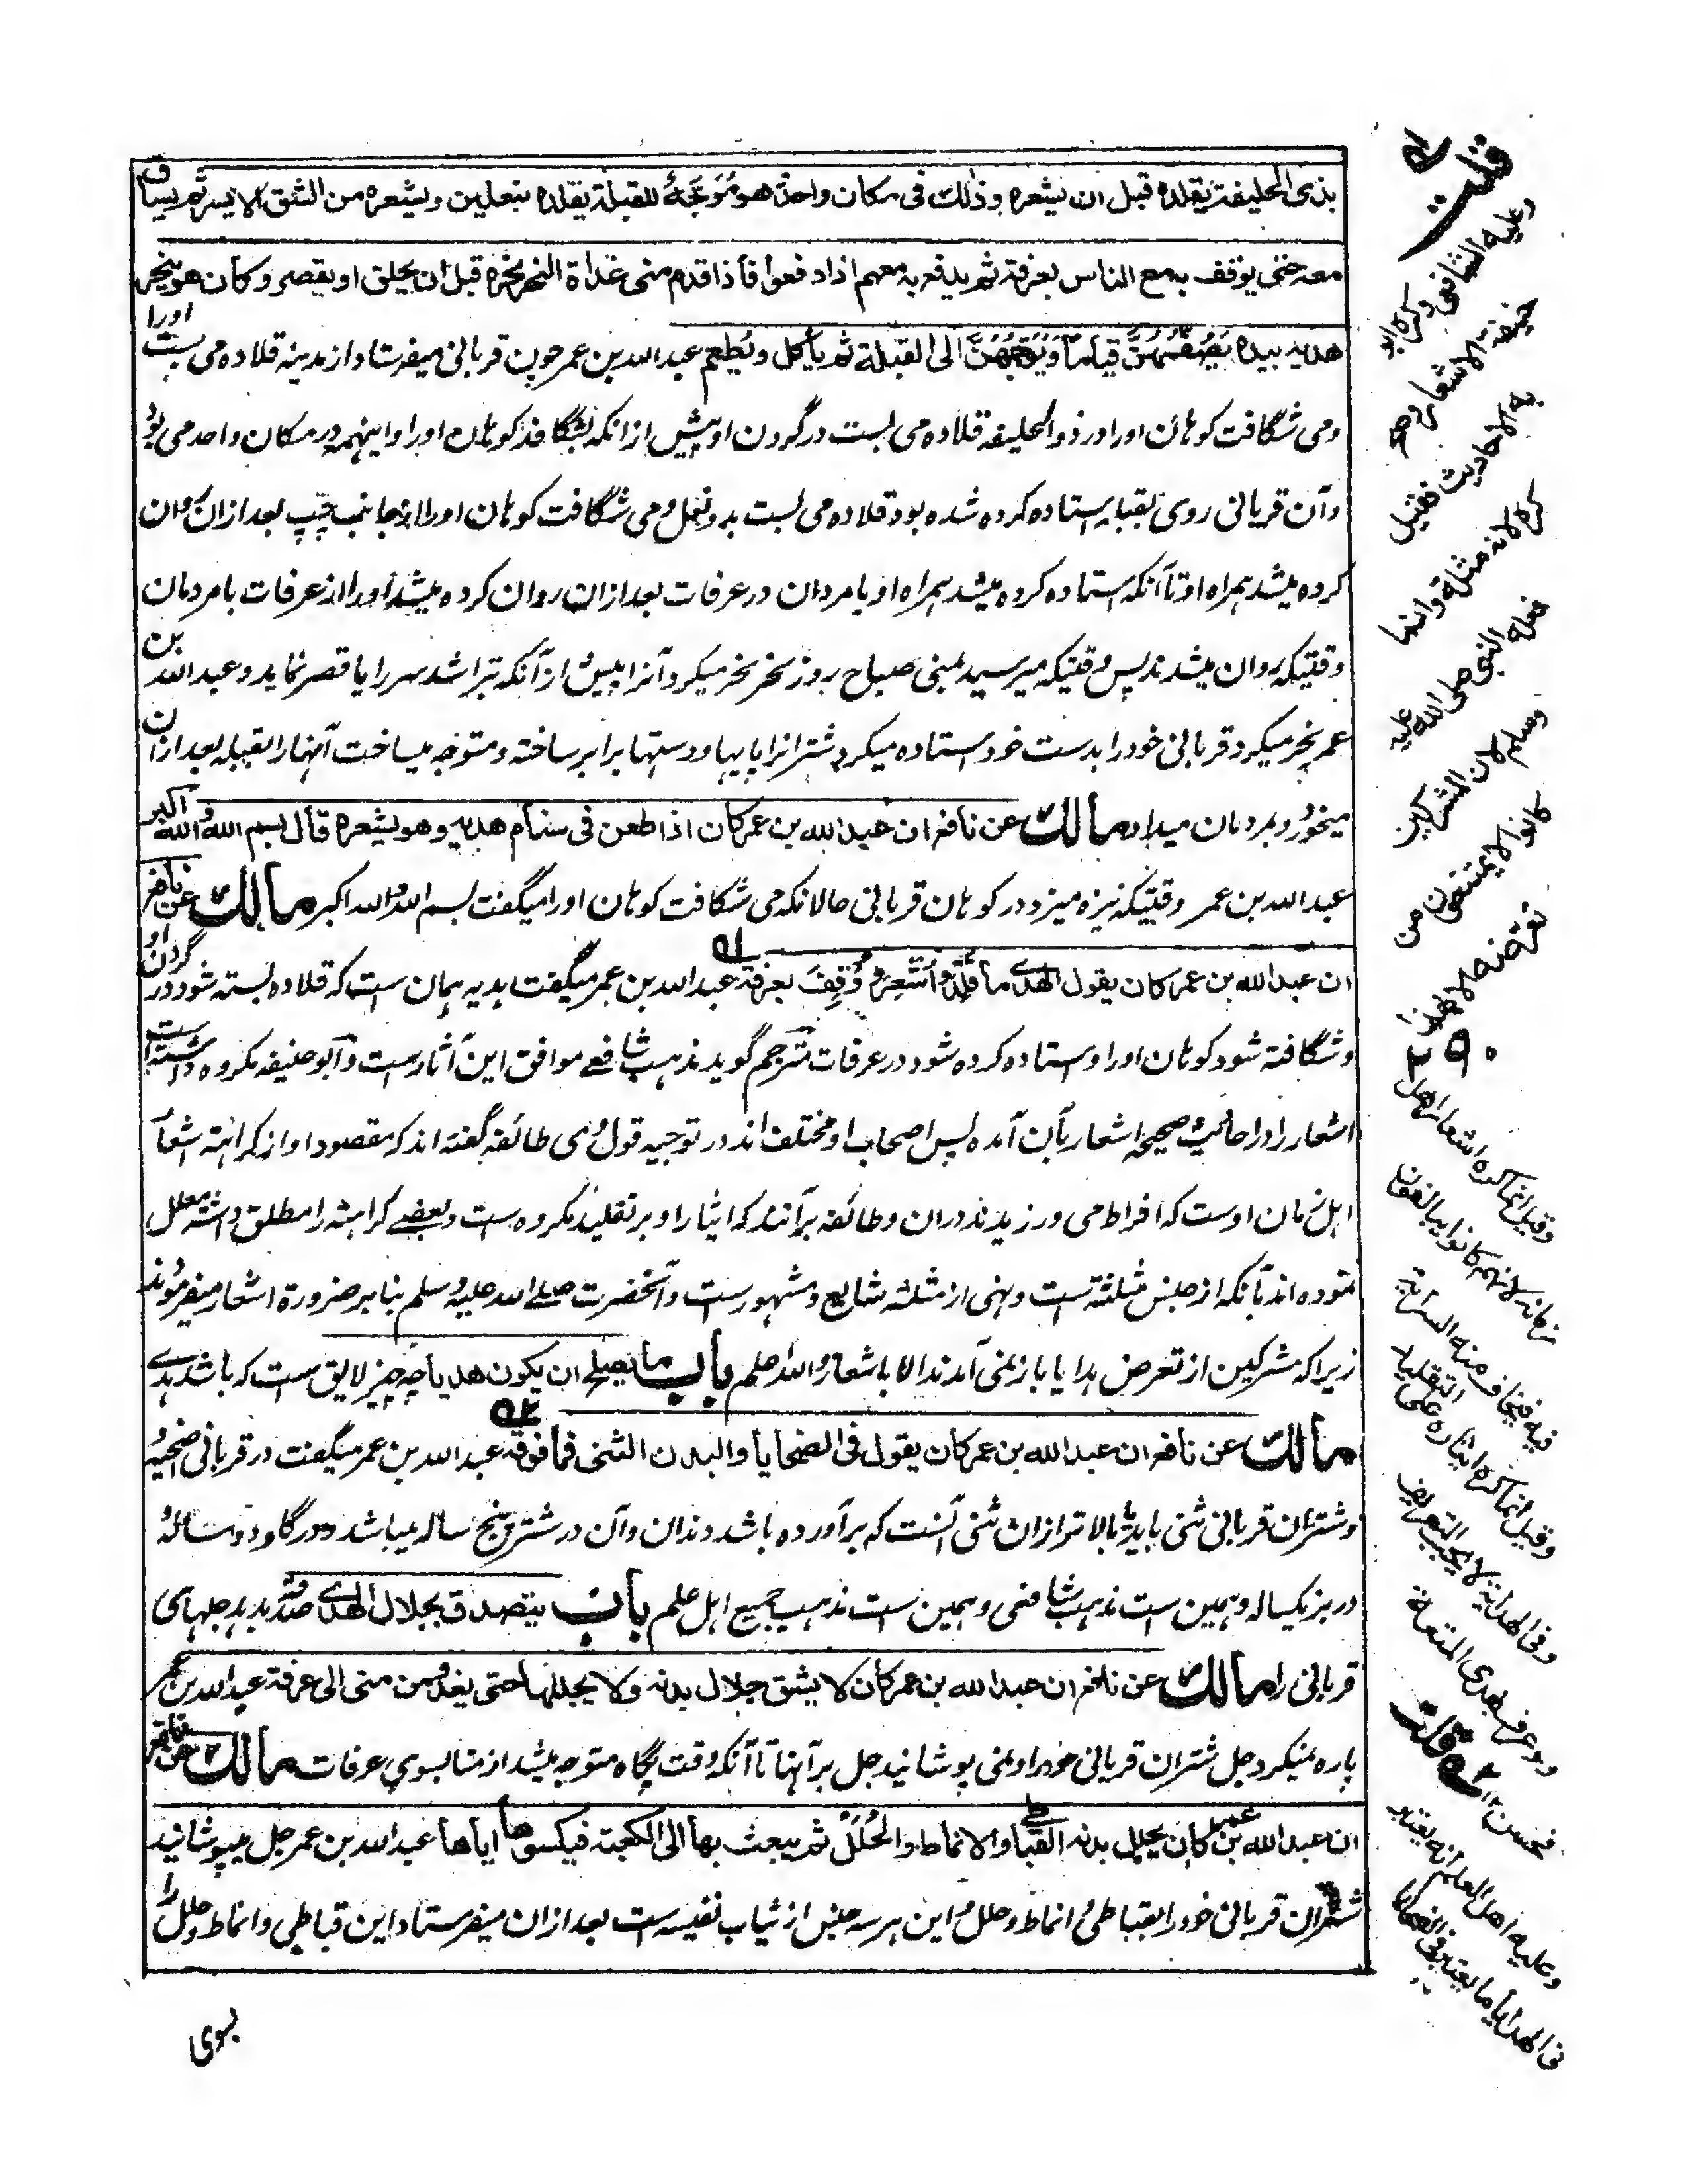 بذی الحلیفة یقلده قبل ان یشعره و ذلک فی مکان واحد هو مُوَجَّهٌ للقبلة یقلده بنعلین ویشعره من الشق الایسر ثم یساق
معه حتی یوقف به مع الناس بعرفة ثم یدفع به معهم اذا دفعوا فاذا قدم منی غداة النحر نحره قبل ان یحلق او یقصر وکان هو ینحر
هدیه بیده یَصُفُّهُنَّ قیاما وَیُوَجِّهُهُنَّ الی القبلة ثم یأکل ویُطعم عبد الله بن عمر چون قربانی میفرستاد از مدینه قلاده می بست اورا
ومی شگافت کوهان اورا در ذوالحلیفه قلاده می بست در گردن او پیش از انکه بشگافد کوهان اورا و اینهمه در مکان واحد می بود
وآن قربانی روی بقبله استاده کرده شده بود قلاده می بست بدو نعل و می شگافت کوهان اورا از جانب چپ بعد ازان روان
کرده میشد همراه او تا آنکه استاده کرده میشد همراه او بامردمان در عرفات بعد ازان روان کرده میشد اورا از عرفات بامردمان
وقتیکه روان میشدند پس وقتیکه میرسید بمنی صباح روز نحر نحر میکرد آنرا پیش از آنکه بتراشد سر را یا قصر نماید و عبد الله بن
عمر نحر میکرد قربانی خود را بدست خود استاده میکرد شترانرا پایها و دستها برابر ساخته و متوجه میساخت آنهارا بقبله بعد ازان
میخورد و بمردمان میداد مالک عن نافع ان عبد الله بن عمر کان اذا طعن فی سنام هدیه وهو یشعره قال بسم الله والله اکبر
عبد الله بن عمر وقتیکه نیزه میزد در کوهان قربانی حالانکه می شگافت کوهان اورا میگفت بسم الله والله اکبر مالک عن نافع
ان عبد الله بن عمر کان یقول الهدی ما قُلِّدَ واُشْعِرَ وُقِفَ بعرفة عبد الله بن عمر میگفت هدیه همان ست که قلاده بسته شود در گردن او
و شگافته شود کوهان اورا و استاده کرده شود در عرفات مترجم گوید مذهب شافعی موافق این آثارست و ابو حنیفه مکروه داشته است
اشعار را و احادیث صحیحه اشعار بآن آمده پس اصحاب او مختلف اند در توجیه قول وی طائفه گفته اند که مقصود او از کراهته اشعار
اهل زمان اوست که افراط می ورزیدند دران و طائفه برآنند که ایثار او بر تقلید مکروه ست و بعضی کراهته را مطلق داشته معلل
نموده اند بآنکه از جنس مثله است و نهی از مثله شایع و مشهورست و آنحضرت صلی الله علیه وسلم بنابر ضرورة اشعار میفرمودند
زیرا که مشرکین از تعرض هدایا باز نمی آمدند الا باشعار والله اعلم باب ما یصلح ان یکون هدیا چه چیز لایق ست که باشد هدی
مالک عن نافع ان عبد الله بن عمر کان یقول فی الضحایا والبدن الثنی فما فوقه عبد الله بن عمر میگفت در قربانی اضحیه
و شتران قربانی ثنی باید یا بالاتر ازان ثنی آنست که برآورده باشد دندان و آن در شتر پنج ساله میباشد و در گاو دو ساله و
در بز یکساله و همین ست مذهب شافعی و همین ست مذهب جمیع اهل علم باب یتصدق بجلال الهدی صدقه بدهد جلهای
قربانی را مالک عن نافع ان عبد الله بن عمر کان لا یشق جلال بدنه ولا یجللها حتی یغدو من منی الی عرفة عبد الله بن عمر
پاره نمیکرد جل شتران قربانی خود را و نمی پوشانید جل برآنها تا آنکه وقت پگاه متوجه میشد از منا بسوی عرفات مالک عن نافع
ان عبد الله بن عمر کان یجلل بدنه القباطی والانماط والحُلَل ثم یبعث بها الی الکعبة فیکسوها ایاها عبد الله بن عمر جل میپوشانید
شتران قربانی خود را بقباطی و انماط و حلل و این هر سه جنس از ثیاب نفیسه ست بعد ازان میفرستاد این قباطی و انماط و حلل را
بسوی
قلت
وعلیه الشافعی وکره ابو
حنیفة الاشعار وصح
به الاحادیث فقیل
کره لانه مثلة وانما
فعله النبی صلی الله علیه
وسلم لان المشرکین
کانوا لا یمتنعون من
تعرضه الا بهذا
وقیل انما کره اشعار اهل
زمانه لانهم کانوا یبالغون
فیه فیخاف منه السرایة
وقیل انما کره ایثاره علی التقلید
وفی الهدایة لا یجب التعریف
ولو عرف بهدی المتعة
فحسن ۱۲ قلت
وعلیه اهل العلم انه یعتبر
فی الهدایا ما یعتبر فی الضحایا